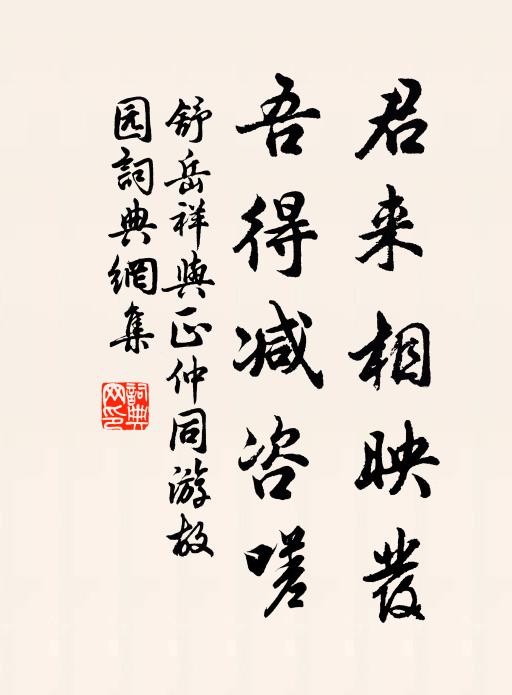 君来相映發
吾得减咨嗟
舒岳祥與正仲同游故
园詞典網集
詞典網印